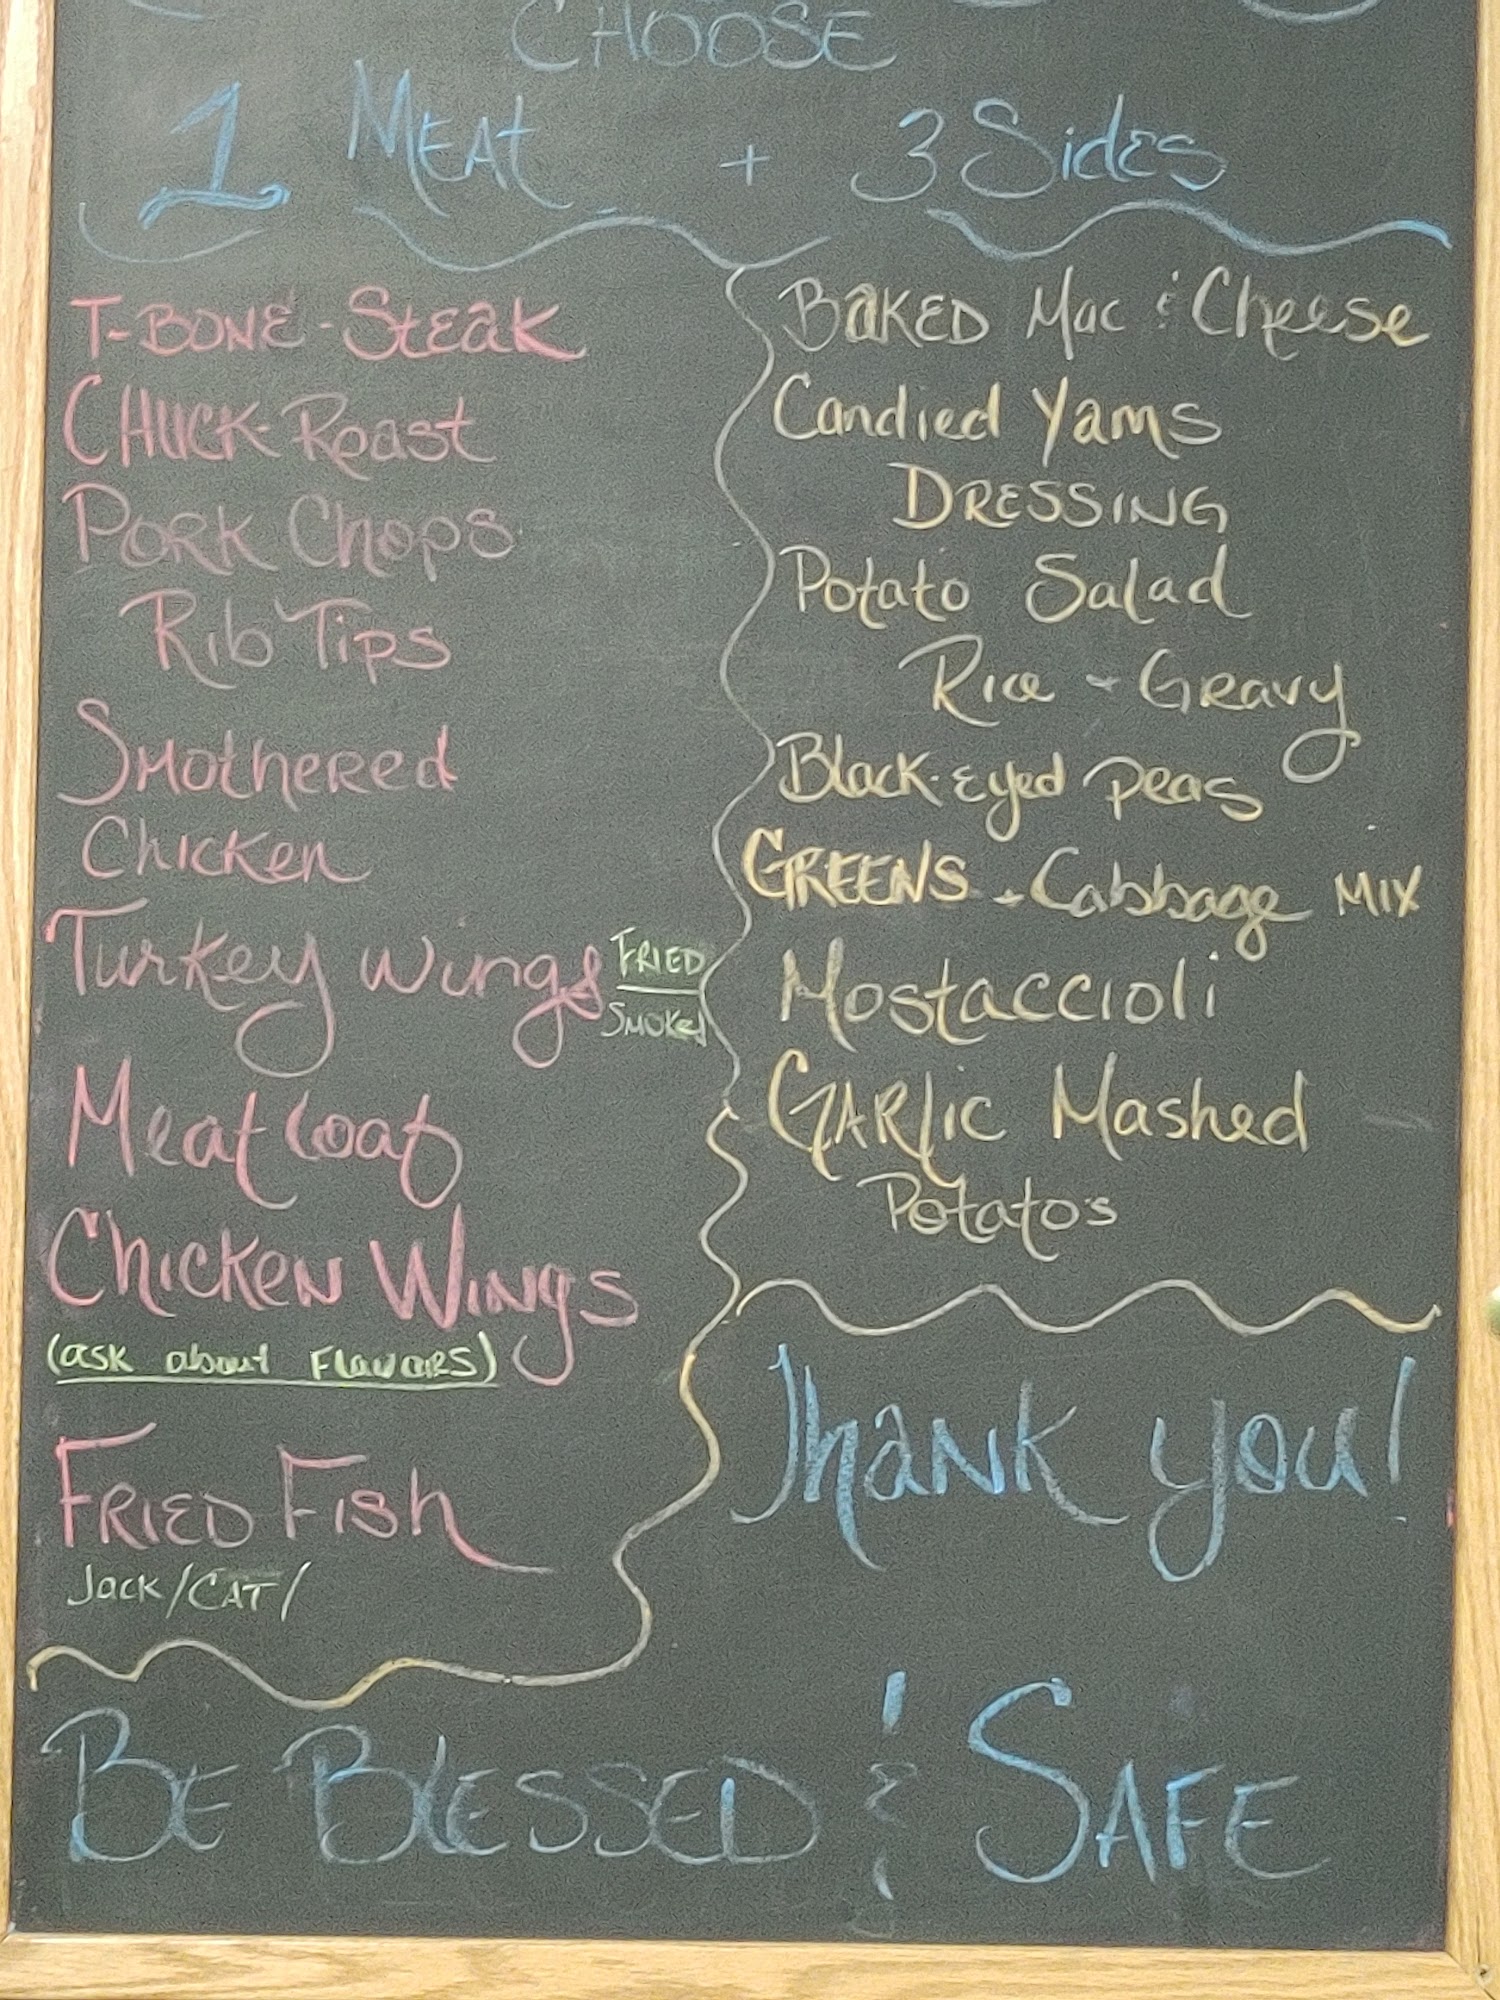 CHOOSE
1 MEAt + 3 Sides
T-BONE-StEak
CHUCK-Roast
PORK Chops
Rib Tips
Smothered
Chicken
Turkey wings FRIED
Smoked
Meat loaf
Chicken Wings
(ask about Flavors)
FRIED Fish
Jack/CAT/
BAKED Mac & Cheese
Candied Yams
DRESSING
Potato Salad
Rice + Gravy
Black-Eyed Peas
GREENS + Cabbage MIX
Mostaccioli
GARlic Mashed
Potato's
Thank you!
BE BlESSED & SAFE